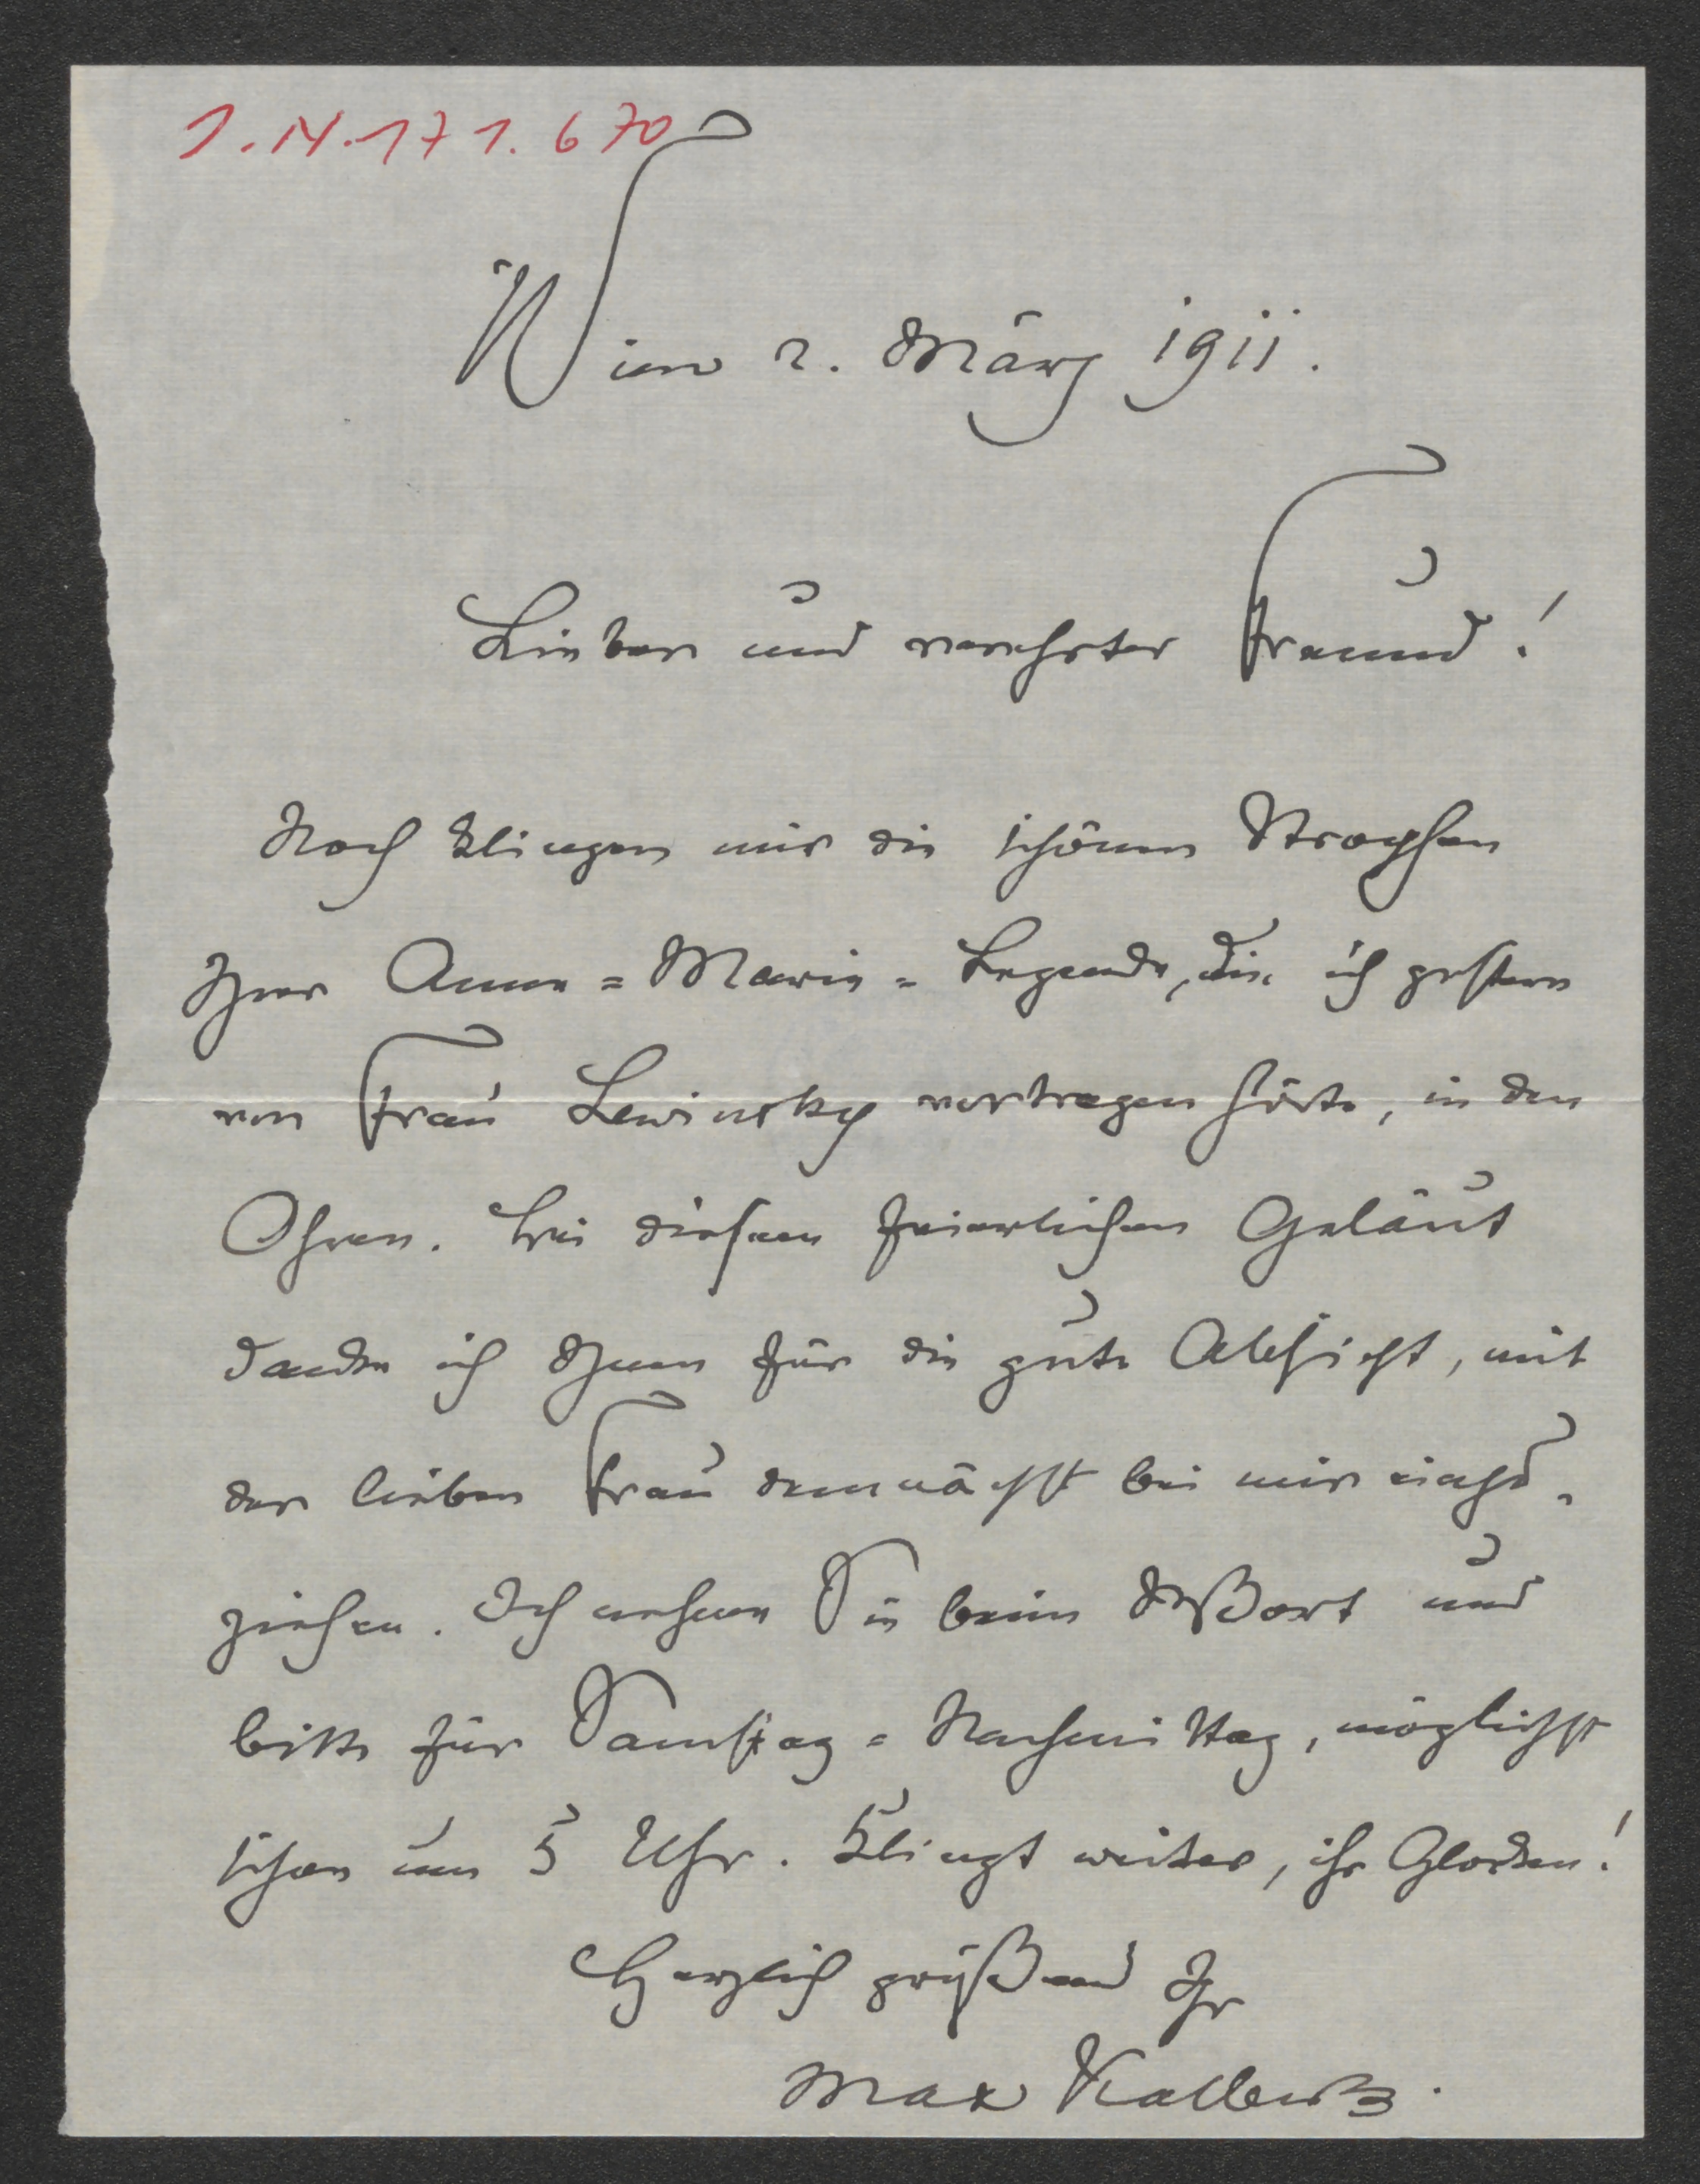 I.N.171.670
Wien 2. März 1911.
Lieber und verehrter Freund!
Noch klingen mir die schönen Strophen
Ihrer Anna=Maria=Legende, die ich gestern
von Frau Lewinsky vortragen hörte, in den
Ohren. Bei diesem feierlichen Geläut
danke ich Ihnen für die gute Absicht, mit
der lieben Frau demnächst bei mir einzu-
ziehen. Ich nehme Sie beim Wort und
bitte für Samstag=Nachmittag, möglichst
schon um 5 Uhr. Klingt weiter, ihr Glocken!
Herzlich grüßend Ihr
Max Kalbeck.